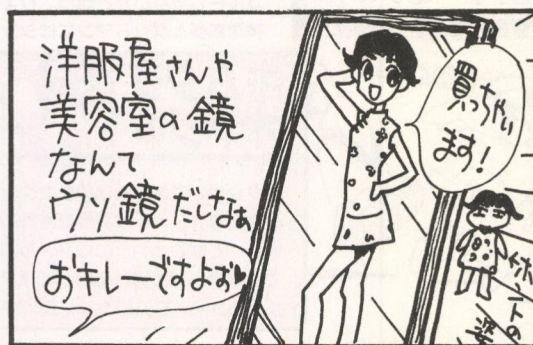 洋服屋さんや
美容室の鏡
なんて
ウソ鏡だしなぁ
おキレーですよぉ♥
買っちゃい
ます!
ホントの
姿